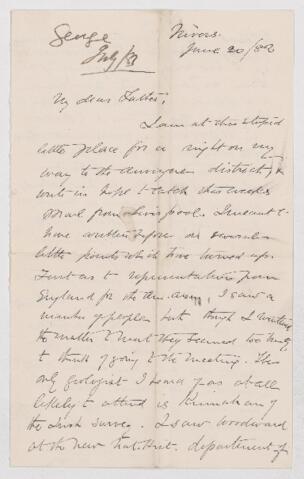 George
July/82
Nivers.
June 20/82
My dear Father;
I am at this stupid
little place for a night on my
way to the Auvergne district, &
write in hope to catch this weeks
mail from Liverpool. I meant to
have written before on several
little points which have turned up.
First as to representation from
England for the Am. Assn, I saw a
number of people but though I mentioned
the matter to most they seemed too busy
to think of going to the meeting. The
only geologist I heard of as at all
likely to attend is Kinnahan of
the Irish survey. I saw Woodward
at the new Nat. Hist. department of